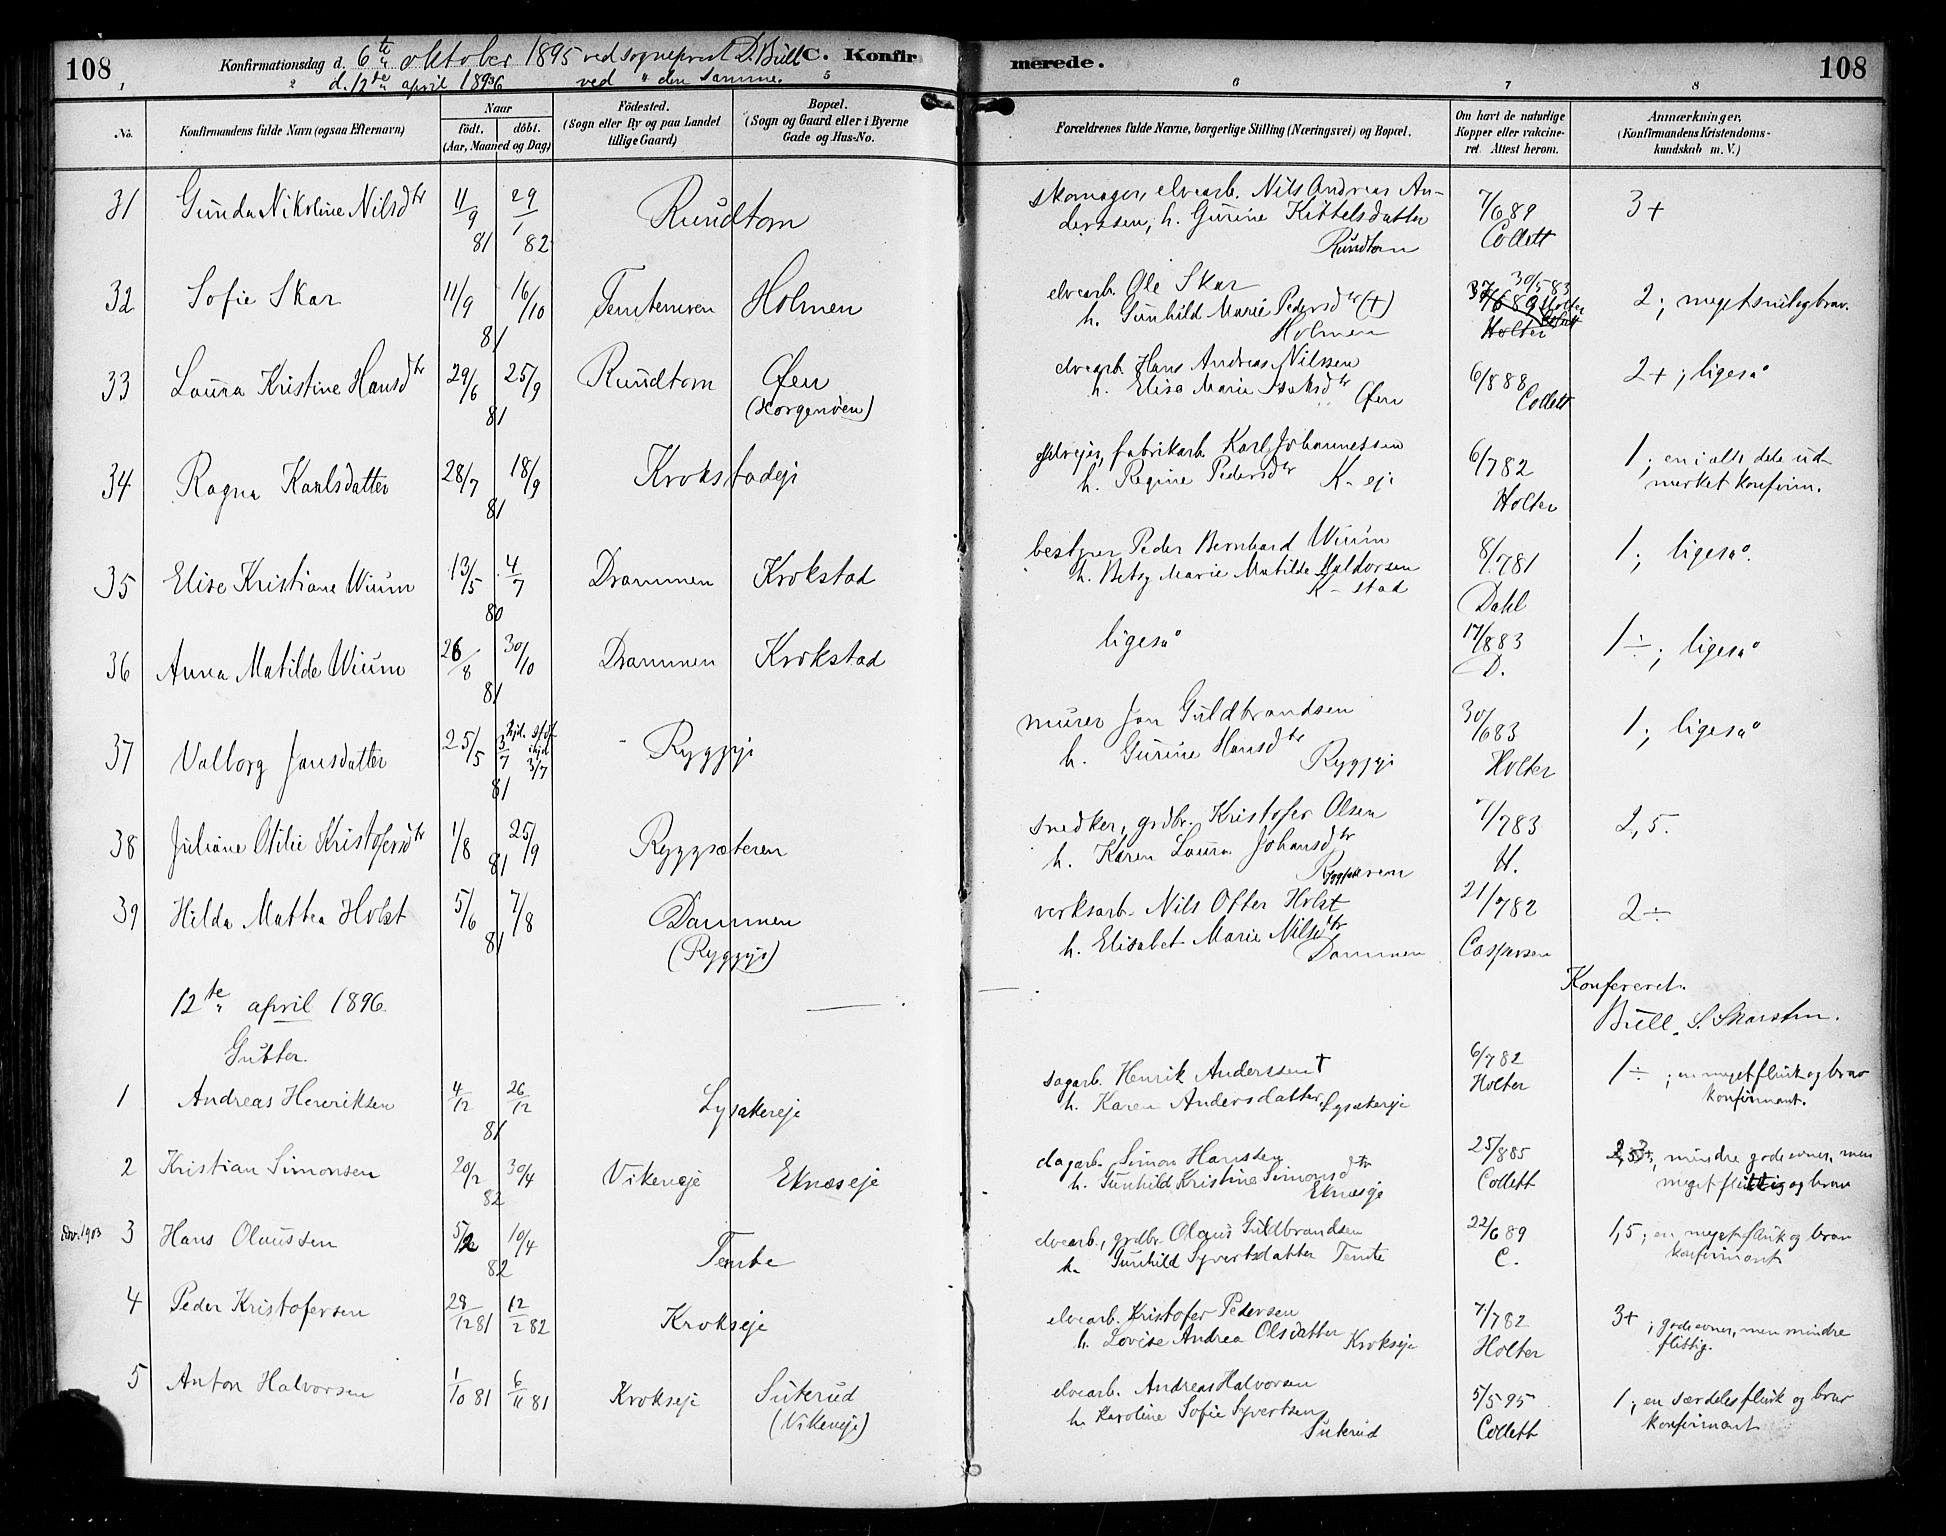 108
Konfirmationsdag d. 6te oktober 1895 ved sogneprest D. Bull C. Konfirmerede.
d. 12te april 1896 ved " den samme.
108
1 2 5 6 7 8
No.
Konfirmandens fulde Navn (ogsaa Efternavn)
Naar
født. døbt.
(Aar, Maaned og Dag)
Fødested.
(Sogn eller By og paa Landet
tillige Gaard)
Bopæl.
(Sogn og Gaard eller i Byerne
Gade og Hus-No.
Forældrenes fulde Navne, borgerlige Stilling (Næringsvei) og Bopæl.
Om havt de naturlige
Kopper eller vakcine-
ret. Attest herom.
Anmærkninger.
(Konfirmandens Kristendoms-
kundskab m. V.)
31 Gunda Nikoline Nilsdtr 11/9 81 29/1 82 Rundtom
skomager, elvearb. Nils Andreas An-
derssen, h. Gurine Kittelsdatter
Rundtom
7/6 89 Collett 3+
32 Sofie Skar 11/9 16/10 81 Temtemven Holmen
elvearb. Ole Skar
h. Gunhild Marie Pedersdtr (+)
Holmen
30/5 83 Holter
2; meget snil og brav.
33 Laura Kristine Hansdtr 29/6 25/9 81 Rundtom Øen
(Horgenøen)
elvearb. Hans Andreas Nilssen
h. Elise Marie Isaksdtr Øen
6/8 88 Collett 2+; ligeså
34 Ragna Karlsdatter 28/7 18/9 81 Krokstadeje
selvejer, fabrikarb. Karl Johannessen
h. Regine Pedersdtr K-eje
6/7 82 Holter
1; en i alle dele ud-
merket konfirm.
35 Elise Kristiane Wium 13/5 4/7 80 Drammen Krokstad
bestyrer Peder Bernhard Wium
h. Betsy Marie Matilde Haldorsen
K-stad
8/7 81 Dahl 1; ligeså.
36 Anna Matilde Wium 26/8 30/10 81 Drammen Krokstad
ligeså
17/8 83 D. 1÷; ligeså
37 Valborg Jansdatter 25/5 3/7 81 hjd. stadf. i kjd 3/7 Ryggeje
murer Jan Guldbrandsen
h. Gurine Hansdtr Ryggeje
30/6 83 Holter 1; ligeså
38 Juliane Otilie Kristofersdtr 1/8 25/9 81 Ryggsæteren
snedker, grdbr. Kristofer Olsen
h. Karen Laura Johansdtr
Ryggsæteren
7/7 83 H. 2,5.
39 Hilda Mattea Holst 5/6 7/8 81 Dammen
(Ryggeje)
verksarb. Nils Otter Holst
h. Elisabet Marie Nilsdtr
Dammen
21/7 82 Caspersen 2÷
Konfereret.
Bull. S. Skarsten.
12te april 1896.
Gutter.
1 Andreas Henriksen 4/12 26/12 81 Lysakereje
sagarb. Henrik Anderssen †
h. Karen Andersdatter, Lysakereje
6/7 82 Holter
1÷; en meget flink og brav
konfirmant.
2 Kristian Simonsen 20/2 30/4 82 Vikeneje Eknæseje
dagarb. Simon Hanssen
h. Gunhild Kristine Simonsdtr
Eknæseje
25/8 85 Collett
mindre gode evner, men
meget flittig og brav
Adv. 1903
3 Hans Olaussen 5/2 10/4 82 Temte
elvearb., grdbr. Olaus Guldbrandsen
h. Gunhild Syvertsdatter Temte
22/6 89 C.
1,5; en meget flink og brav
konfirmant
4 Peder Kristofersen 29/12 81 12/2 82 Krokseje
elvearb. Kristofer Pedersen
h. Lovise Andrea Olsdatter Krokseje
7/7 82 Holter
3+; gode evner, men mindre
flittig.
5 Anton Halvorsen 1/10 81 6/11 81 Krokseje Suterud
(Vikeneje)
elvearb. Andreas Halvorsen
h. Karoline Sofie Syvertsen
Suterud
5/5 95 Collett
1; en særdeles flink og brav
konfirmant